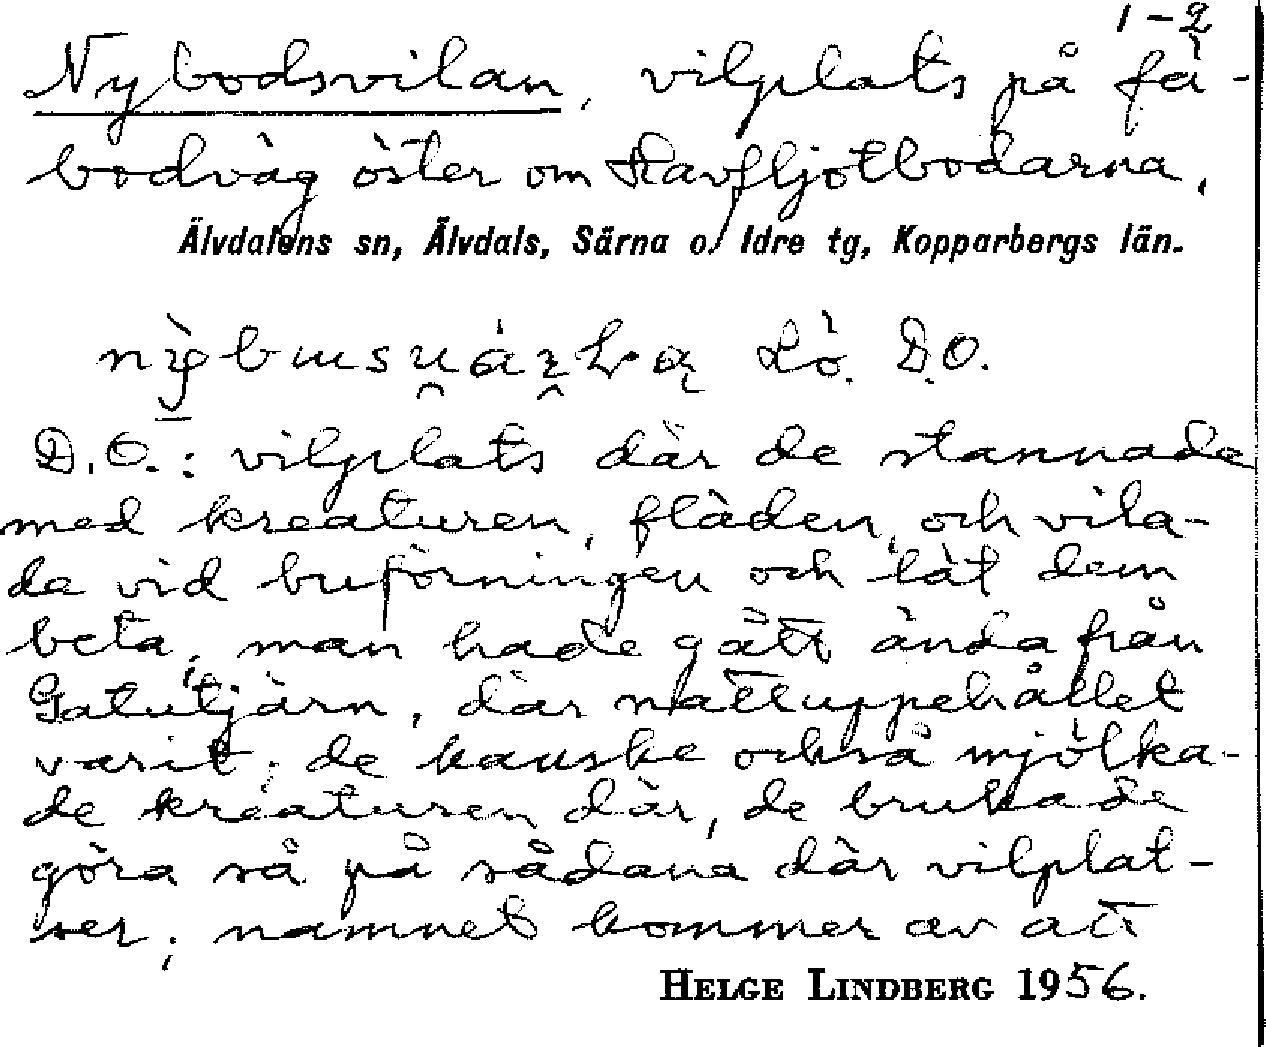 1-2
Nybodsvilan, vilplats på fä-
bodväg öster om Kavfljötbodarna,
Älvdalens sn, Älvdals, Särna o. Idre tg, Kopparbergs län.
Lö. D.O.
D.O.: vilplats där de stannade
med kreaturen, fläden, och vila-
de vid buförningen och lät dem
beta, man hade gått ända från
Gatutjärn, där nattuppehållet
varit; de kanske också mjölka-
de kreaturen där, de brukade
göra så på sådana där vilplat-
ser; namnet kommer av att
HELGE LINDBERG 1956.